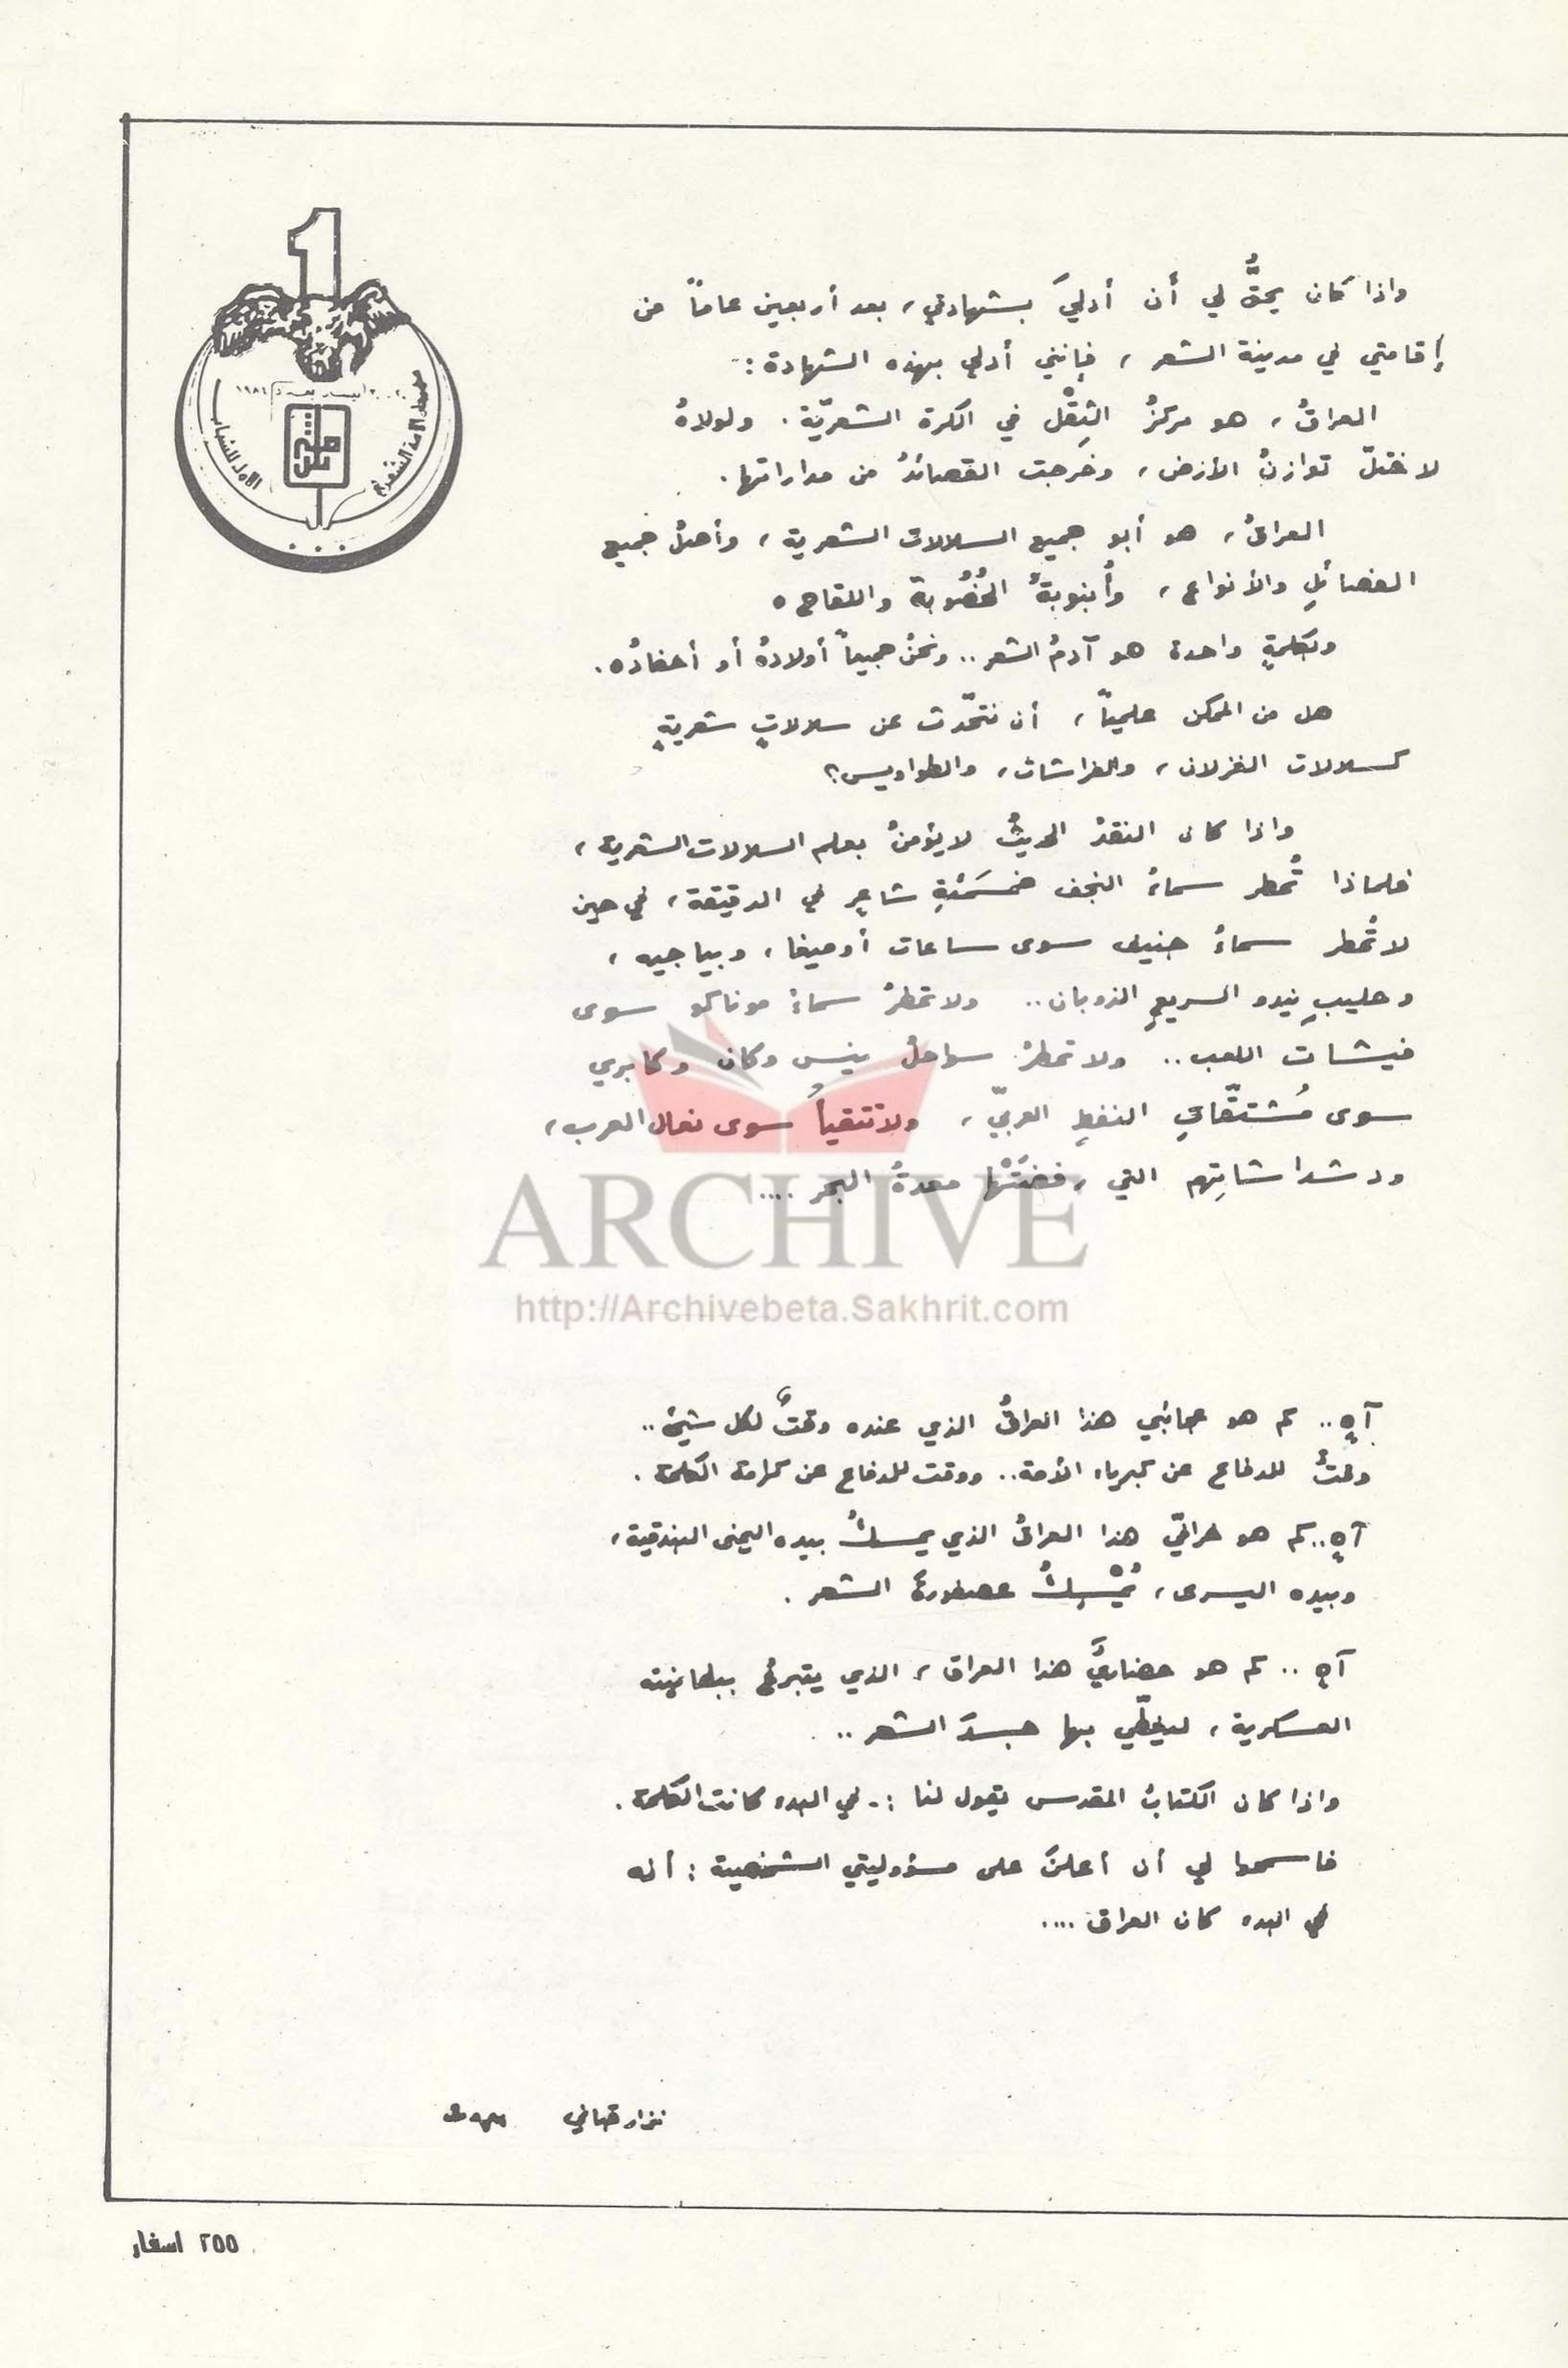 1
مهرجان الامة الشعري
الأول للشباب
واذا كان يحقُّ لي أن أدليَ بشهادتي، بعد أربعين عاماً من
إقامتي في مدينة الشعر، فإنني أدلي بهذه الشهادة :-
العراقُ، هو مركزُ الثِقْل في الكرة الشعريّة. ولولاهُ
لاختلّ توازنُ الأرض، وخرجت القصائدُ من مداراتها.
العراقُ، هو أبو جميع السلالات الشعرية، وأصلُ جميع
الفصائلِ والأنواع، وأُنبوبةُ الخُصُوبة واللقاح.
وبكلمةٍ واحدة هو آدمُ الشعر.. ونحنُ جميعاً أولادهُ أو أحفادُه.
هل من الممكن علمياً، أن نتحّدث عن سلالاتٍ شعريةٍ
كسلالات الغزلان، والفراشات، والطواويس؟
واذا كان النقدُ الحديثُ لا يؤمنُ بعلم السلالات الشعرية،
فلماذا تُمطر سماءُ النجف خمسَمْئةِ شاعرٍ في الدقيقة، في حين
لا تُمطر سماءُ جنيف سوى ساعات أوميغا، وبياجيه،
وحليبِ نيدو السريعِ الذوبان.. ولا تمطرُ سماءُ موناكو سوى
فيشات اللعب.. ولا تمطرُ سواحلُ نيس وكان وكابري
سوى مُشتقّاتِ النفطِ العربيّ، ولا تتقيأُ سوى نعال العرب،
ودشداشاتِهم التي رفضَتْها معدةُ البحر ....
ARCHIVE
http://Archivebeta.Sakhrit.com
آهٍ.. كم هو عجائبي هذا العراقُ الذي عنده وقتٌ لكل شيءٍ..
وقتٌ للدفاع عن كبرياء الأمة.. ووقت للدفاع عن كرامة الكلمة.
آهٍ.. كم هو خرافيّ هذا العراقُ الذي يمسكُ بيده اليمنى البندقية،
وبيده اليسرى، يُمْسِكُ عصفورةَ الشعر.
آهٍ .. كم هو حضاريٌّ هذا العراق، الذي يتبرعُ ببطانيته
العسكرية، ليغطّي بها جسدَ الشعر..
واذا كان الكتابُ المقدس يقول لنا :- في البدء كانت الكلمة.
فاسمحوا لي أن أعلنَ على مسؤوليتي الشخصية : أنه
في البدء كان العراق ....
نزار قباني
٢٥٥ اسفار